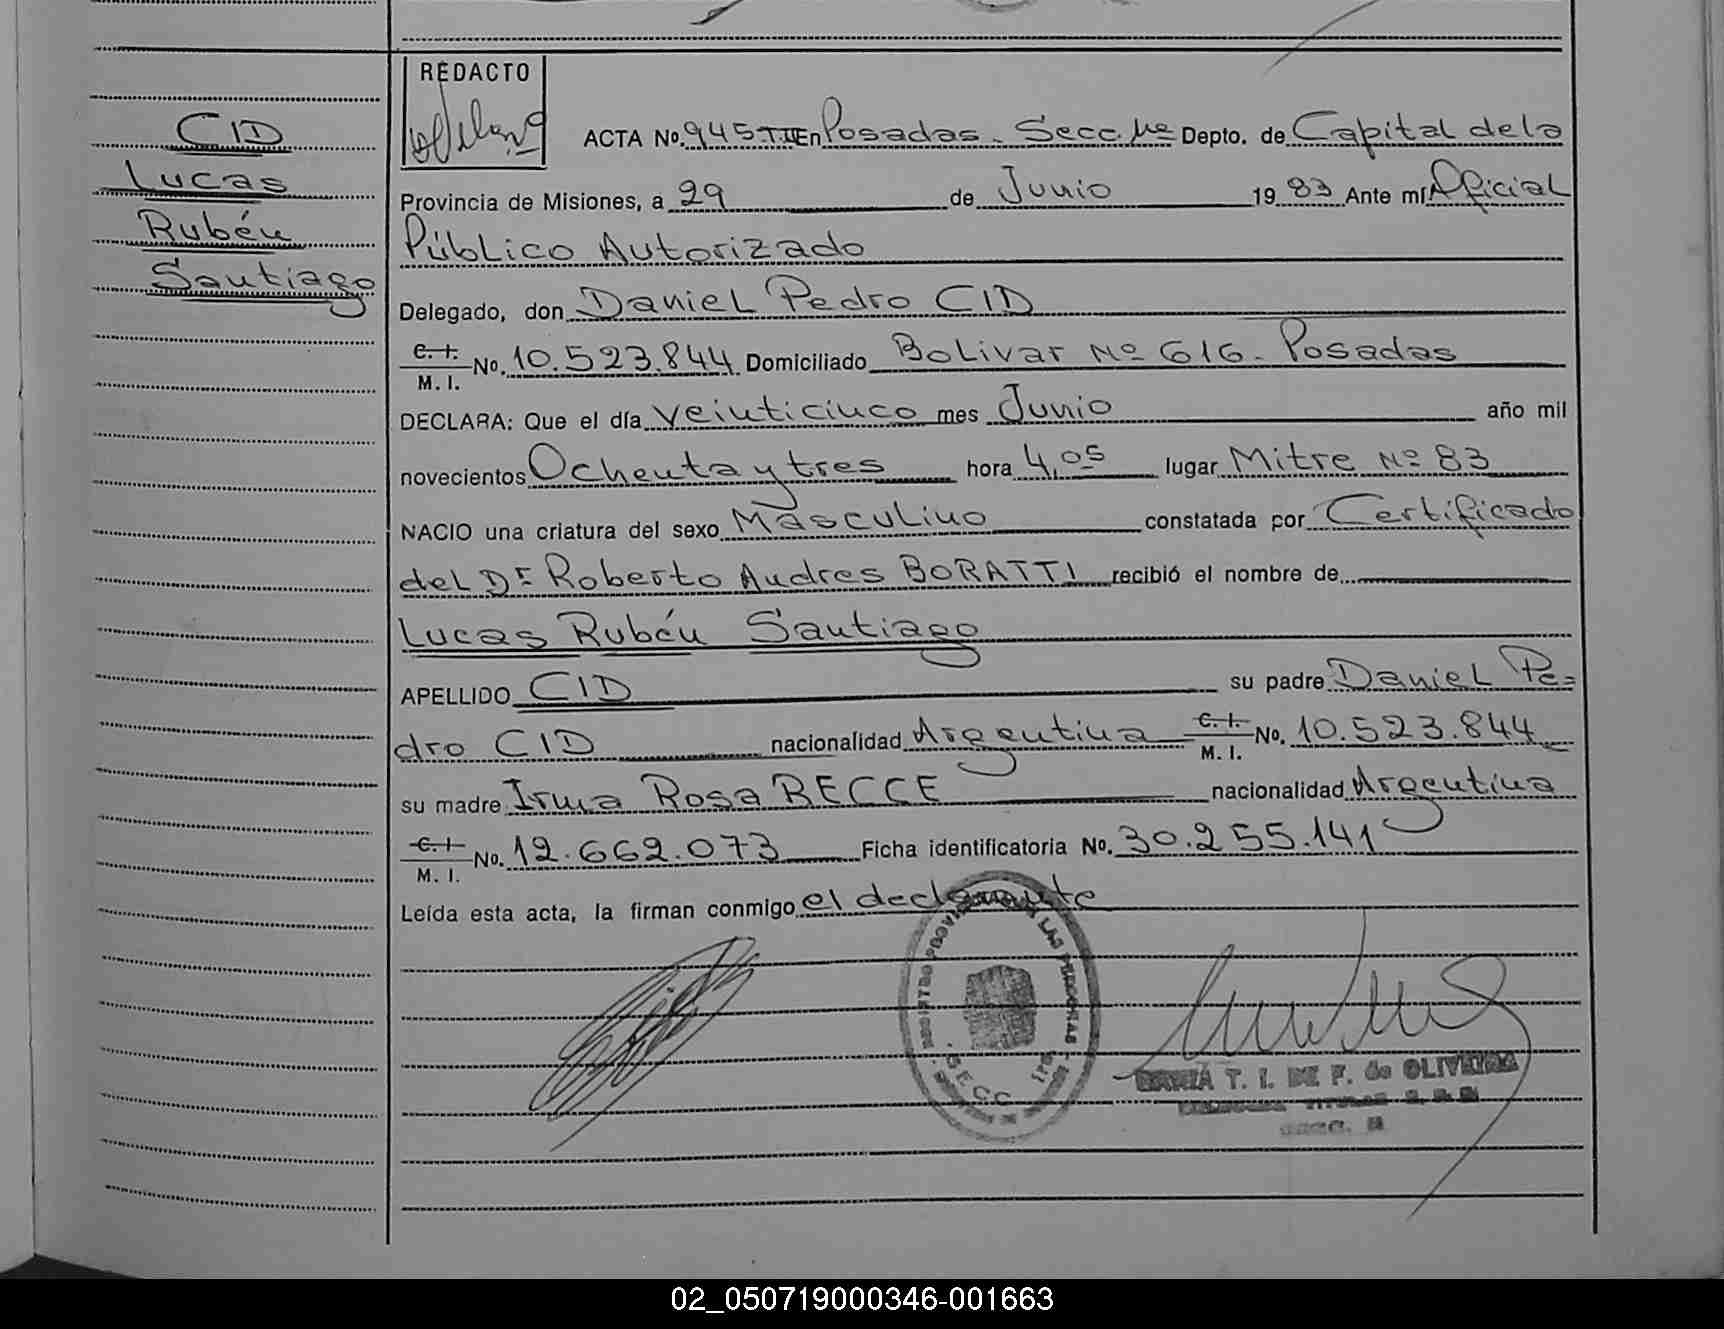 CID
Lucas
Rubén
Santiago
REDACTO
ACTA No. 945 TII En Posadas. Secc. Depto. de Capital de la
Provincia de Misiones, a 29 de Junio 1983 Ante mí Oficial
Público Autorizado
Delegado, don Daniel Pedro CID
C. I. M. I. No. 10.523.844 Domiciliado Bolivar Nº 616. Posadas
DECLARA: Que el día veinticinco mes Junio año mil
novecientos Ochenta y tres hora 4,05 lugar Mitre Nº 83
NACIO una criatura del sexo Masculino constatada por Certificado
del Dr Roberto Andres BORATTI recibió el nombre de
Lucas Rubén Santiago
APELLIDO CID su padre Daniel Pe=
dro CID nacionalidad Argentina C. I. M. I. No. 10.523.844
su madre Irma Rosa BECCE nacionalidad Argentina
C. I. M. I. No. 12.662.073 Ficha identificatoria No. 30.255.141
Leída esta acta, la firman conmigo el declarante
REGISTRO PROVINCIAL LAS PERSONAS
SECC
MARIA T. I. DE F. de OLIVEIRA
TITULAR
SECC.
02_050719000346-001663